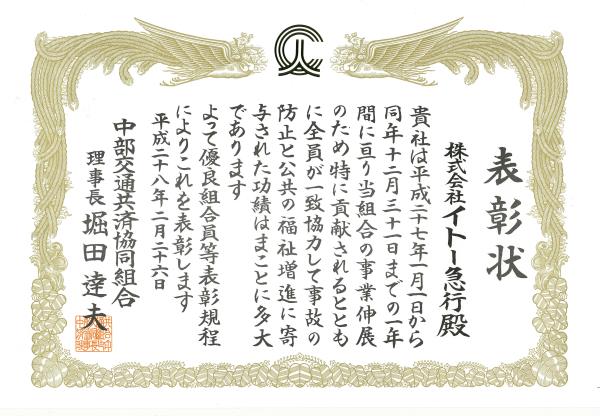 表彰状
株式会社イトー急行殿
貴社は平成二十七年一月一日から
同年十二月三十一日までの一年
間に亘り当組合の事業伸展
のため特に貢献されるととも
に全員が一致協力して事故の
防止と公共の福祉増進に寄
与された功績はまことに多大
であります
よって優良組合員等表彰規程
によりこれを表彰します
平成二十八年二月二十六日
中部交通共済協同組合
理事長 堀田達夫